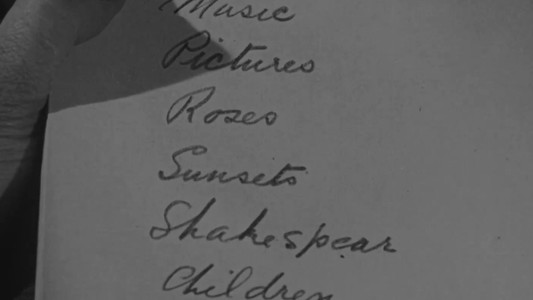 Music
Pictures
Roses
Sunsets
Shakespear
Children